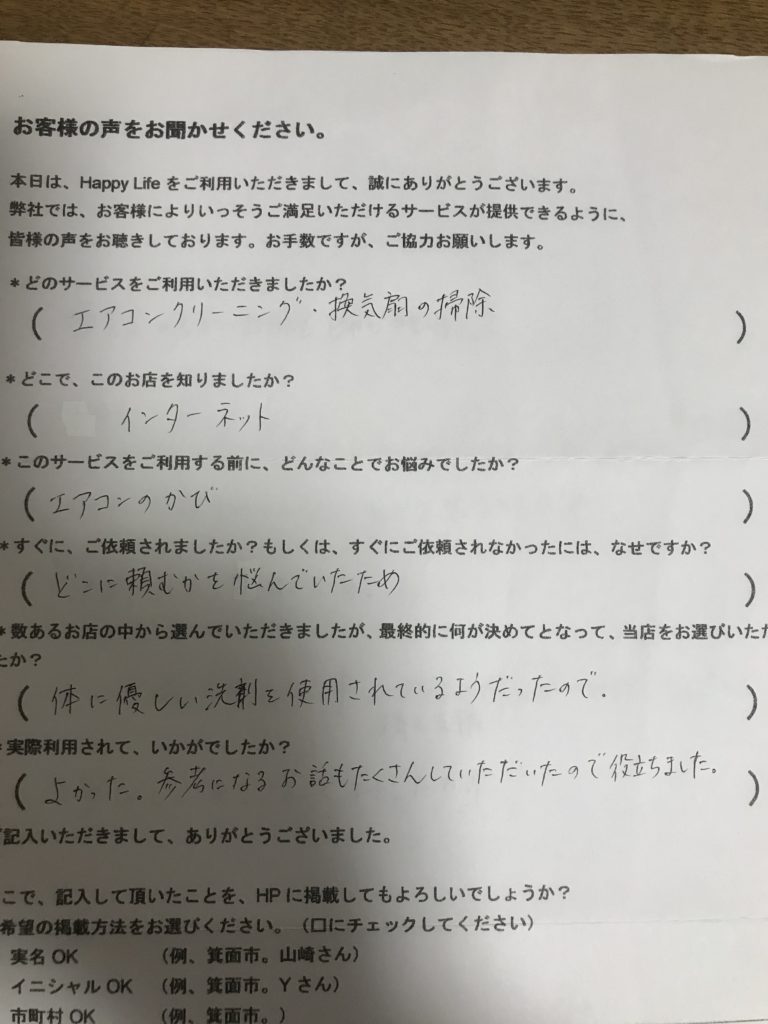 お客様の声をお聞かせください。
本日は、Happy Life をご利用いただきまして、誠にありがとうございます。
弊社では、お客様によりいっそうご満足いただけるサービスが提供できるように、
皆様の声をお聴きしております。お手数ですが、ご協力お願いします。
*どのサービスをご利用いただきましたか?
( エアコンクリーニング・換気扇の掃除 )
*どこで、このお店を知りましたか?
( インターネット )
*このサービスをご利用する前に、どんなことでお悩みでしたか?
( エアコンのかび )
*すぐに、ご依頼されましたか?もしくは、すぐにご依頼されなかったには、なぜですか?
( どこに頼むかを悩んでいたため )
*数あるお店の中から選んでいただきましたが、最終的に何が決めてとなって、当店をお選びいただ
たか?
( 体に優しい洗剤を使用されているようだったので。 )
*実際利用されて、いかがでしたか?
( よかった。参考になるお話もたくさんしていただいたので役立ちました。 )
ご記入いただきまして、ありがとうございました。
こで、記入して頂いたことを、HPに掲載してもよろしいでしょうか?
希望の掲載方法をお選びください。(口にチェックしてください)
実名 OK (例、箕面市。山崎さん)
イニシャル OK (例、箕面市。Y さん)
市町村 OK (例、箕面市。)